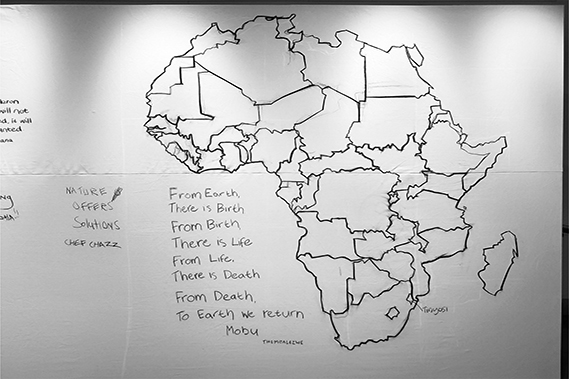 will not
d, it will
NATURE
OFFERS
Solutions
CHEF CHAZZ
From Earth,
There is Birth
From Birth,
There is Life
From Life,
There is Death
From Death,
To Earth we return
Mobu